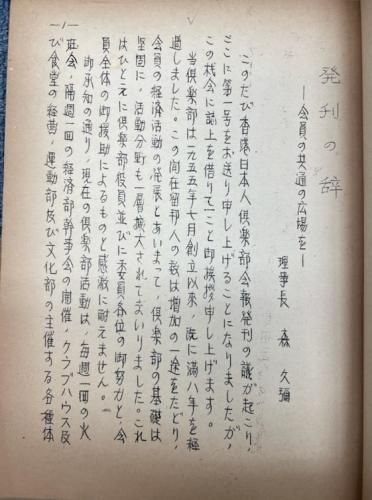 発刊の辞
―会員の共通の広場を―
理事長 森 久彌
このたび香港日本人倶楽部会報発刊の議が起こり、
ここに第一号をお送り申し上げることになりましたが、
この機会に誌上を借りて一こと御挨拶申し上げます。
当倶楽部は一九五五年七月創立以来、既に満八年を経
過しました。この間在留邦人の数は増加の一途をたどり、
会員の経済活動の発展とあいまって、倶楽部の基礎は
堅固に、活動分野も一層拡大されてまいりました。これ
はひとえに倶楽部役員並びに委員各位の御努力と、会
員全体の御援助によるものと感激に耐えません。
御承知の通り、現在の倶楽部活動は、毎週一回の火
曜会、隔週一回の経済部幹事会の開催、クラブハウス及
び食堂の経営、運動部及び文化部の主催する各種体
―1―